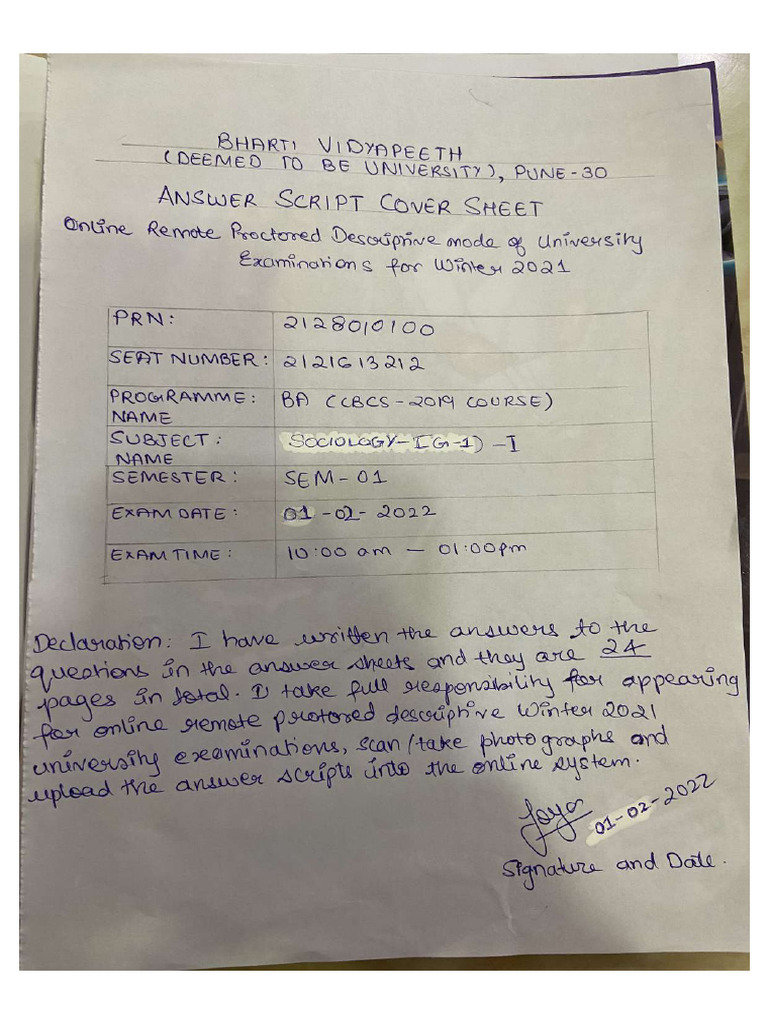 BHARTI VIDYAPEETH
(DEEMED TO BE UNIVERSITY), PUNE-30
ANSWER SCRIPT COVER SHEET
Online Remote Proctored Descriptive mode of University
Examinations for Winter 2021
PRN: 2128010100
SEAT NUMBER: 2121613212
PROGRAMME: BA (CBCS-2019 COURSE)
NAME
SUBJECT: SOCIOLOGY-I(G-1) -I
NAME
SEMESTER: SEM-01
EXAM DATE: 01-02-2022
EXAM TIME: 10:00 am - 01:00pm
Declaration: I have written the answers to the
questions in the answer sheets and they are 24
pages in total. I take full responsibility for appearing
for online remote protored descriptive Winter 2021
university examinations, scan/take photographs and
upload the answer scripts into the online system.
01-02-2022
Signature and Date.